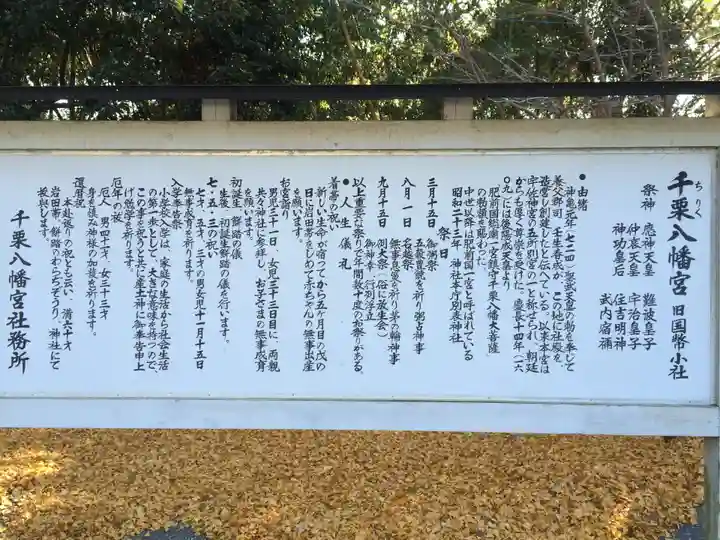 千栗八幡宮 旧国幣小社
ちりく
祭神 應神天皇 難波皇子
仲哀天皇 宇治皇子
神功皇后 住吉明神
武内宿禰
●由緒
神亀元年(七二四)聖武天皇の勅を奉じて
養父郡司 壬生春成が この地に社殿を
造営し創建したと伝へている。以来本宮は
宇佐神宮の五所別宮の一と称せられ、朝廷
からも厚い尊崇を受けた。慶長十四年(一六
〇九)には後陽成天皇より
肥前国総廟一宮鎮守千栗八幡大菩薩
の勅額を賜わった。
中世以降は肥前国一宮と呼ばれている
昭和二十三年 神社本庁別表神社
祭日
三月十五日 御粥祭
五穀豊穣を祈り粥占神事
八月一日 名越祭
無事息災を祈り茅の輪神事
九月十五日 例大祭(俗に放生会)
御神幸・行列浮立
以上重要な祭りで年間数十度のお祭りがある。
●人生儀礼
着帯の祝い
新しい生命が宿ってから五ヶ月目の戌の
日に岩田帯をしめて赤ちゃんの無事出産
を願います。
お宮詣り
男児三十一日、女児三十三日目に、両親
共々神社に参拝し、お子さまの無事成育
を願います。
初誕生 餅踏の儀
生後一年 初誕生餅踏の儀を行います。
七・五・三の祝
七才、五才、三才の男女児十一月十五日
無事成育を祈ります。
入学奉告祭
小学校入学は、家庭の生活から社会生活
の第一歩として、大きな意味を持つので、
この事を祝うと共に産土神に御奉告申上
げ勉学を祈ります。
厄年の祓
厄人 男四十才、女三十三才
身を慎み神様の加護を祈ります。
還暦祝
本卦返りの祝とも云い、満六十才
岩田帯、餅踏のそらぢぞうり、神社にて
授与します。
千栗八幡宮社務所